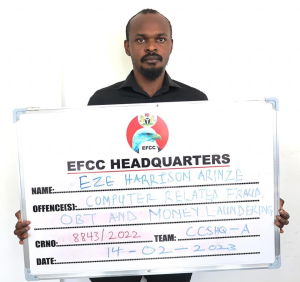 EFCC
EFCC HEADQUARTERS
NAME: EZE HARRISON ARINZE
OFFENCE(S): COMPUTER RELATED FRAUD
OBT AND MONEY LAUNDERING
CRNO: 8843/2022 TEAM: CCSHQ-A
DATE: 14-02-2023